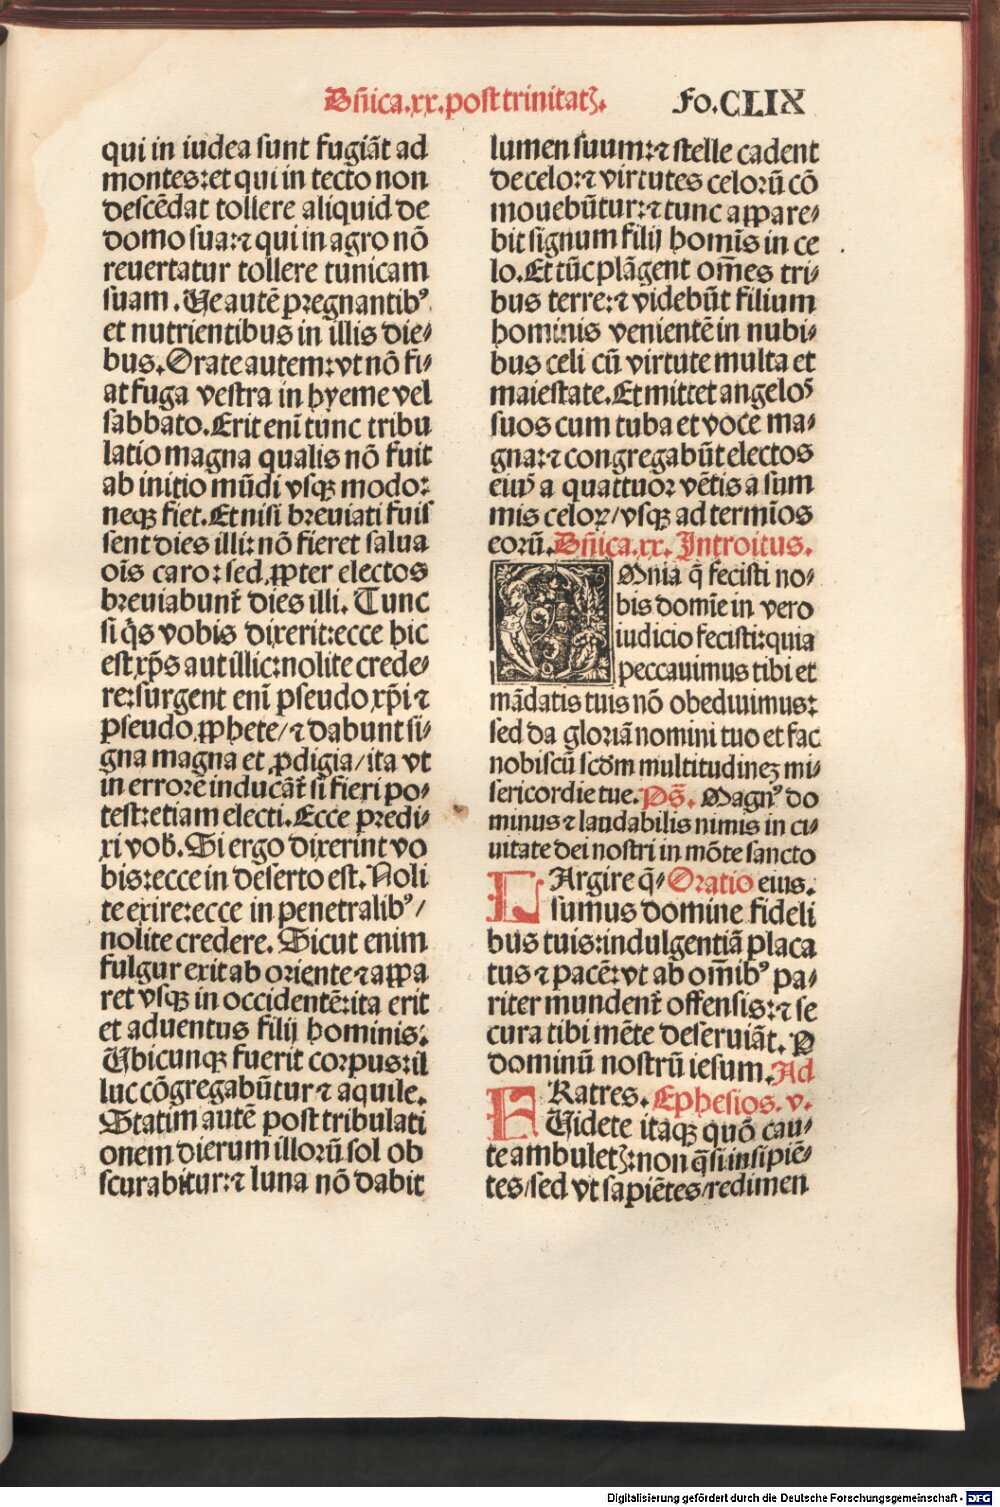 Dn̄ica.xx.post trinitatꝫ. Fo.CLIX
qui in iudea sunt fugiāt ad
montes:et qui in tecto non
descēdat tollere aliquid de
domo sua:⁊ qui in agro nō
reuertatur tollere tunicam
suam. Ue autē pregnantibꝰ
et nutrientibus in illis die⸗
bus. Orate autem:vt nō fi⸗
at fuga vestra in hyeme vel
sabbato. Erit eni᷒ tūnc tribu
latio magna qualis nō fuit
ab initio mūdi vsqꝫ modo:
neqꝫ fiet. Et nisi breuiati fuis
sent dies illi:nō fieret salua
oīs caro:sed ꝓpter electos
breuiabunt᷑ dies illi. Tunc
si q̄s vobis dixerit:ecce hic
est xp̄s aut illic:nolite crede⸗
re:surgent enī pseudo xp̄i ⁊
pseudo ꝓphete/⁊ dabunt si⸗
gna magna et ꝓdigia/ita vt
in errorē inducāt᷑ si fieri po⸗
test:etiam electi. Ecce predi⸗
xi vob̄. Si ergo dixerint vo
bis:ecce in deserto est. Noli
te exire:ecce in penetralibꝰ/
nolite credere. Sicut enim
fulgur exit ab oriente ⁊ appa
ret vsqꝫ in occidentē:ita erit
et aduentus filij hominis:
Ubicunqꝫ fuerit corpus:il
luc cōgregabūtur ⁊ aquile.
Statim autē post tribulati
onem dierum illorū sol ob
scurabitur:⁊ luna nō dabit
lumen suum:⁊ stelle cadent
de celo:⁊ virtutes celorū cō
mouebūtur:⁊ tunc appare⸗
bit signum filij homīs in ce
lo. Et tūc plāgent om̄es tri⸗
bus terre:⁊ videbūt filium
hominis venientē in nubi⸗
bus celi cū virtute multa et
maiestate. Et mittet angelos
suos cum tuba et voce ma⸗
gna:⁊ congregabūt electos
eiuꝰ a quattuor vētis a sum
mis celoꝝ/vsqꝫ ad termīos
eorū. Dn̄ica.xx. Introitus.
OMnia q̄ fecisti no⸗
bis domīe in vero
iudicio fecisti:quia
peccauimus tibi et
mādatis tuis nō obediuimus:
sed da gloriā nomini tuo et fac
nobiscū scd̄m multitudineꝫ mi⸗
sericordie tue. Ps̄. Magnꝰ do
minus ⁊ laudabilis nimis in ci⸗
uitate dei nostri in mōte sancto
LArgire q̄⸗ Oratio eius.
sumus domine fideli
bus tuis:indulgentiā placa
tus ⁊ pacē:vt ab om̄ibꝰ pa⸗
riter mundent᷑ offensis:⁊ se
cura tibi mēte deseruiāt. P
dominū nostrū iesum. Ad
FRatres. Ephesios. v.
Uidete itaqꝫ quō cau⸗
te ambuletꝫ:non q̄si insipiē⸗
tes/sed vt sapiētes/redimen
Digitalisierung gefördert durch die Deutsche Forschungsgemeinschaft - DFG